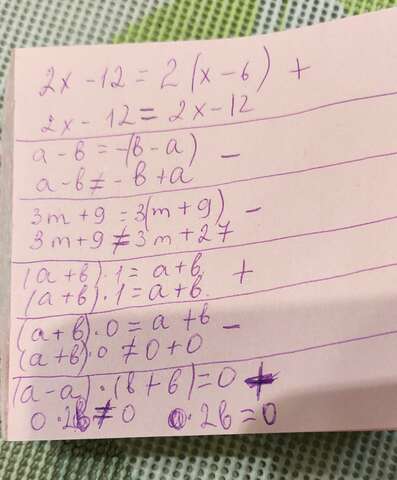 2x - 12 = 2 (x - 6) +
2x - 12 = 2x - 12
a - b = -(b - a) -
a - b ≠ - b + a
3m + 9 = 3(m + 9) -
3m + 9 ≠ 3m + 27
(a + b) · 1 = a + b +
(a + b) · 1 = a + b.
(a + b) · 0 = a + b -
(a + b) · 0 ≠ 0 + 0
(a - a) · (b + b) = 0 +
0 · 2b ≠ 0 0 · 2b = 0